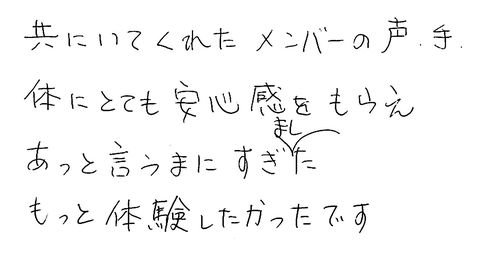 共にいてくれた メンバーの声.手.
体にとても安心感をもらえ
あっと言うまにすぎました
もっと体験したかったです